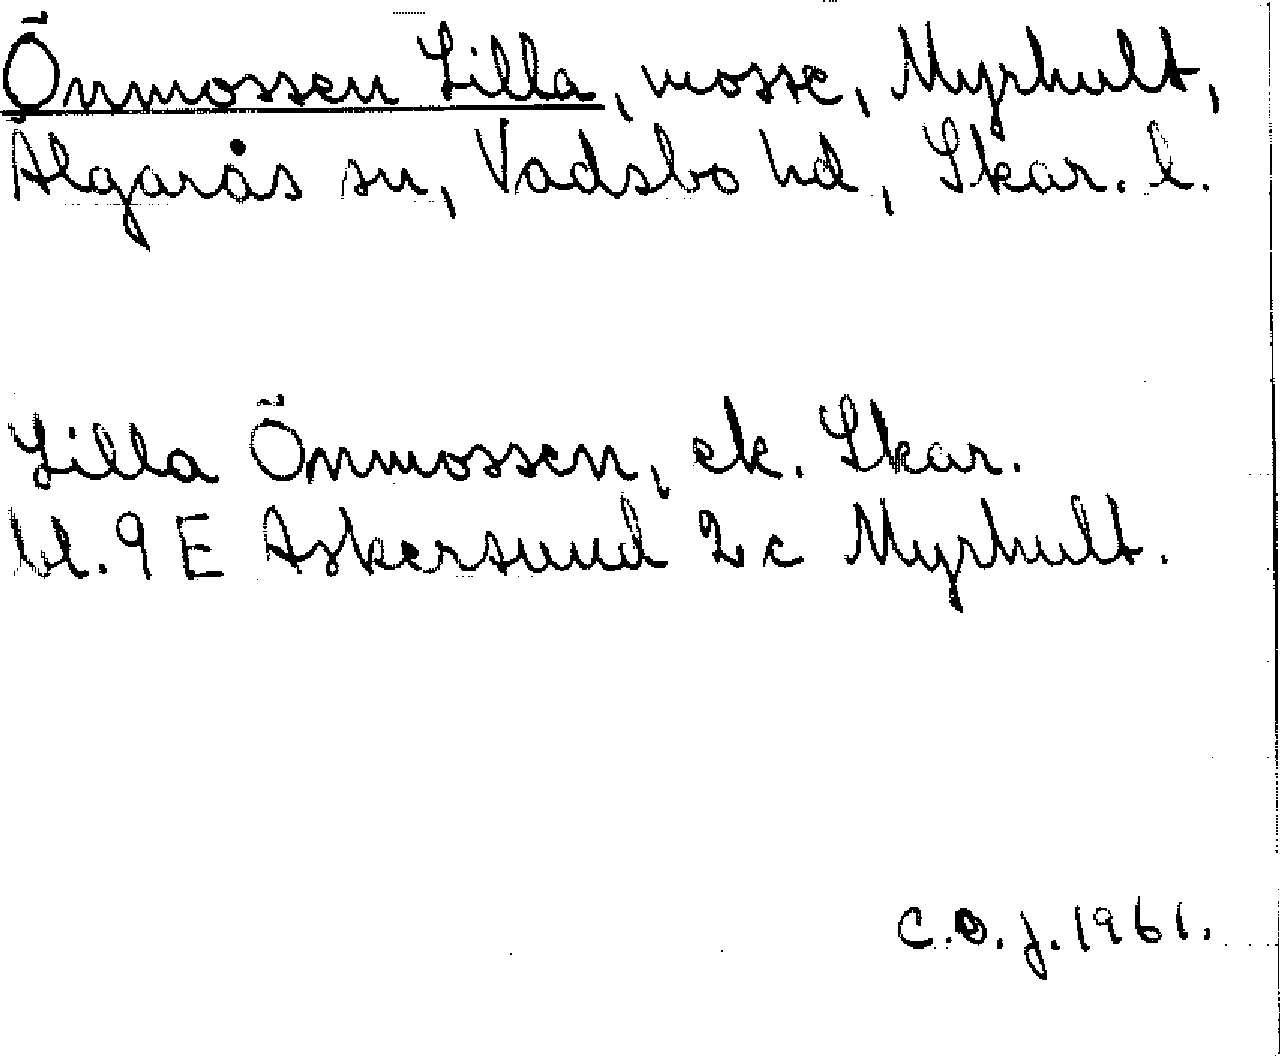 Önmossen Lilla, mosse, Myrhult,
Älgarås sn, Vadsbo hd, Skar. l.
Lilla Önmossen, ek. Skar.
bl. 9 E Askersund 2 c Myrhult.
C.O.J. 1961.